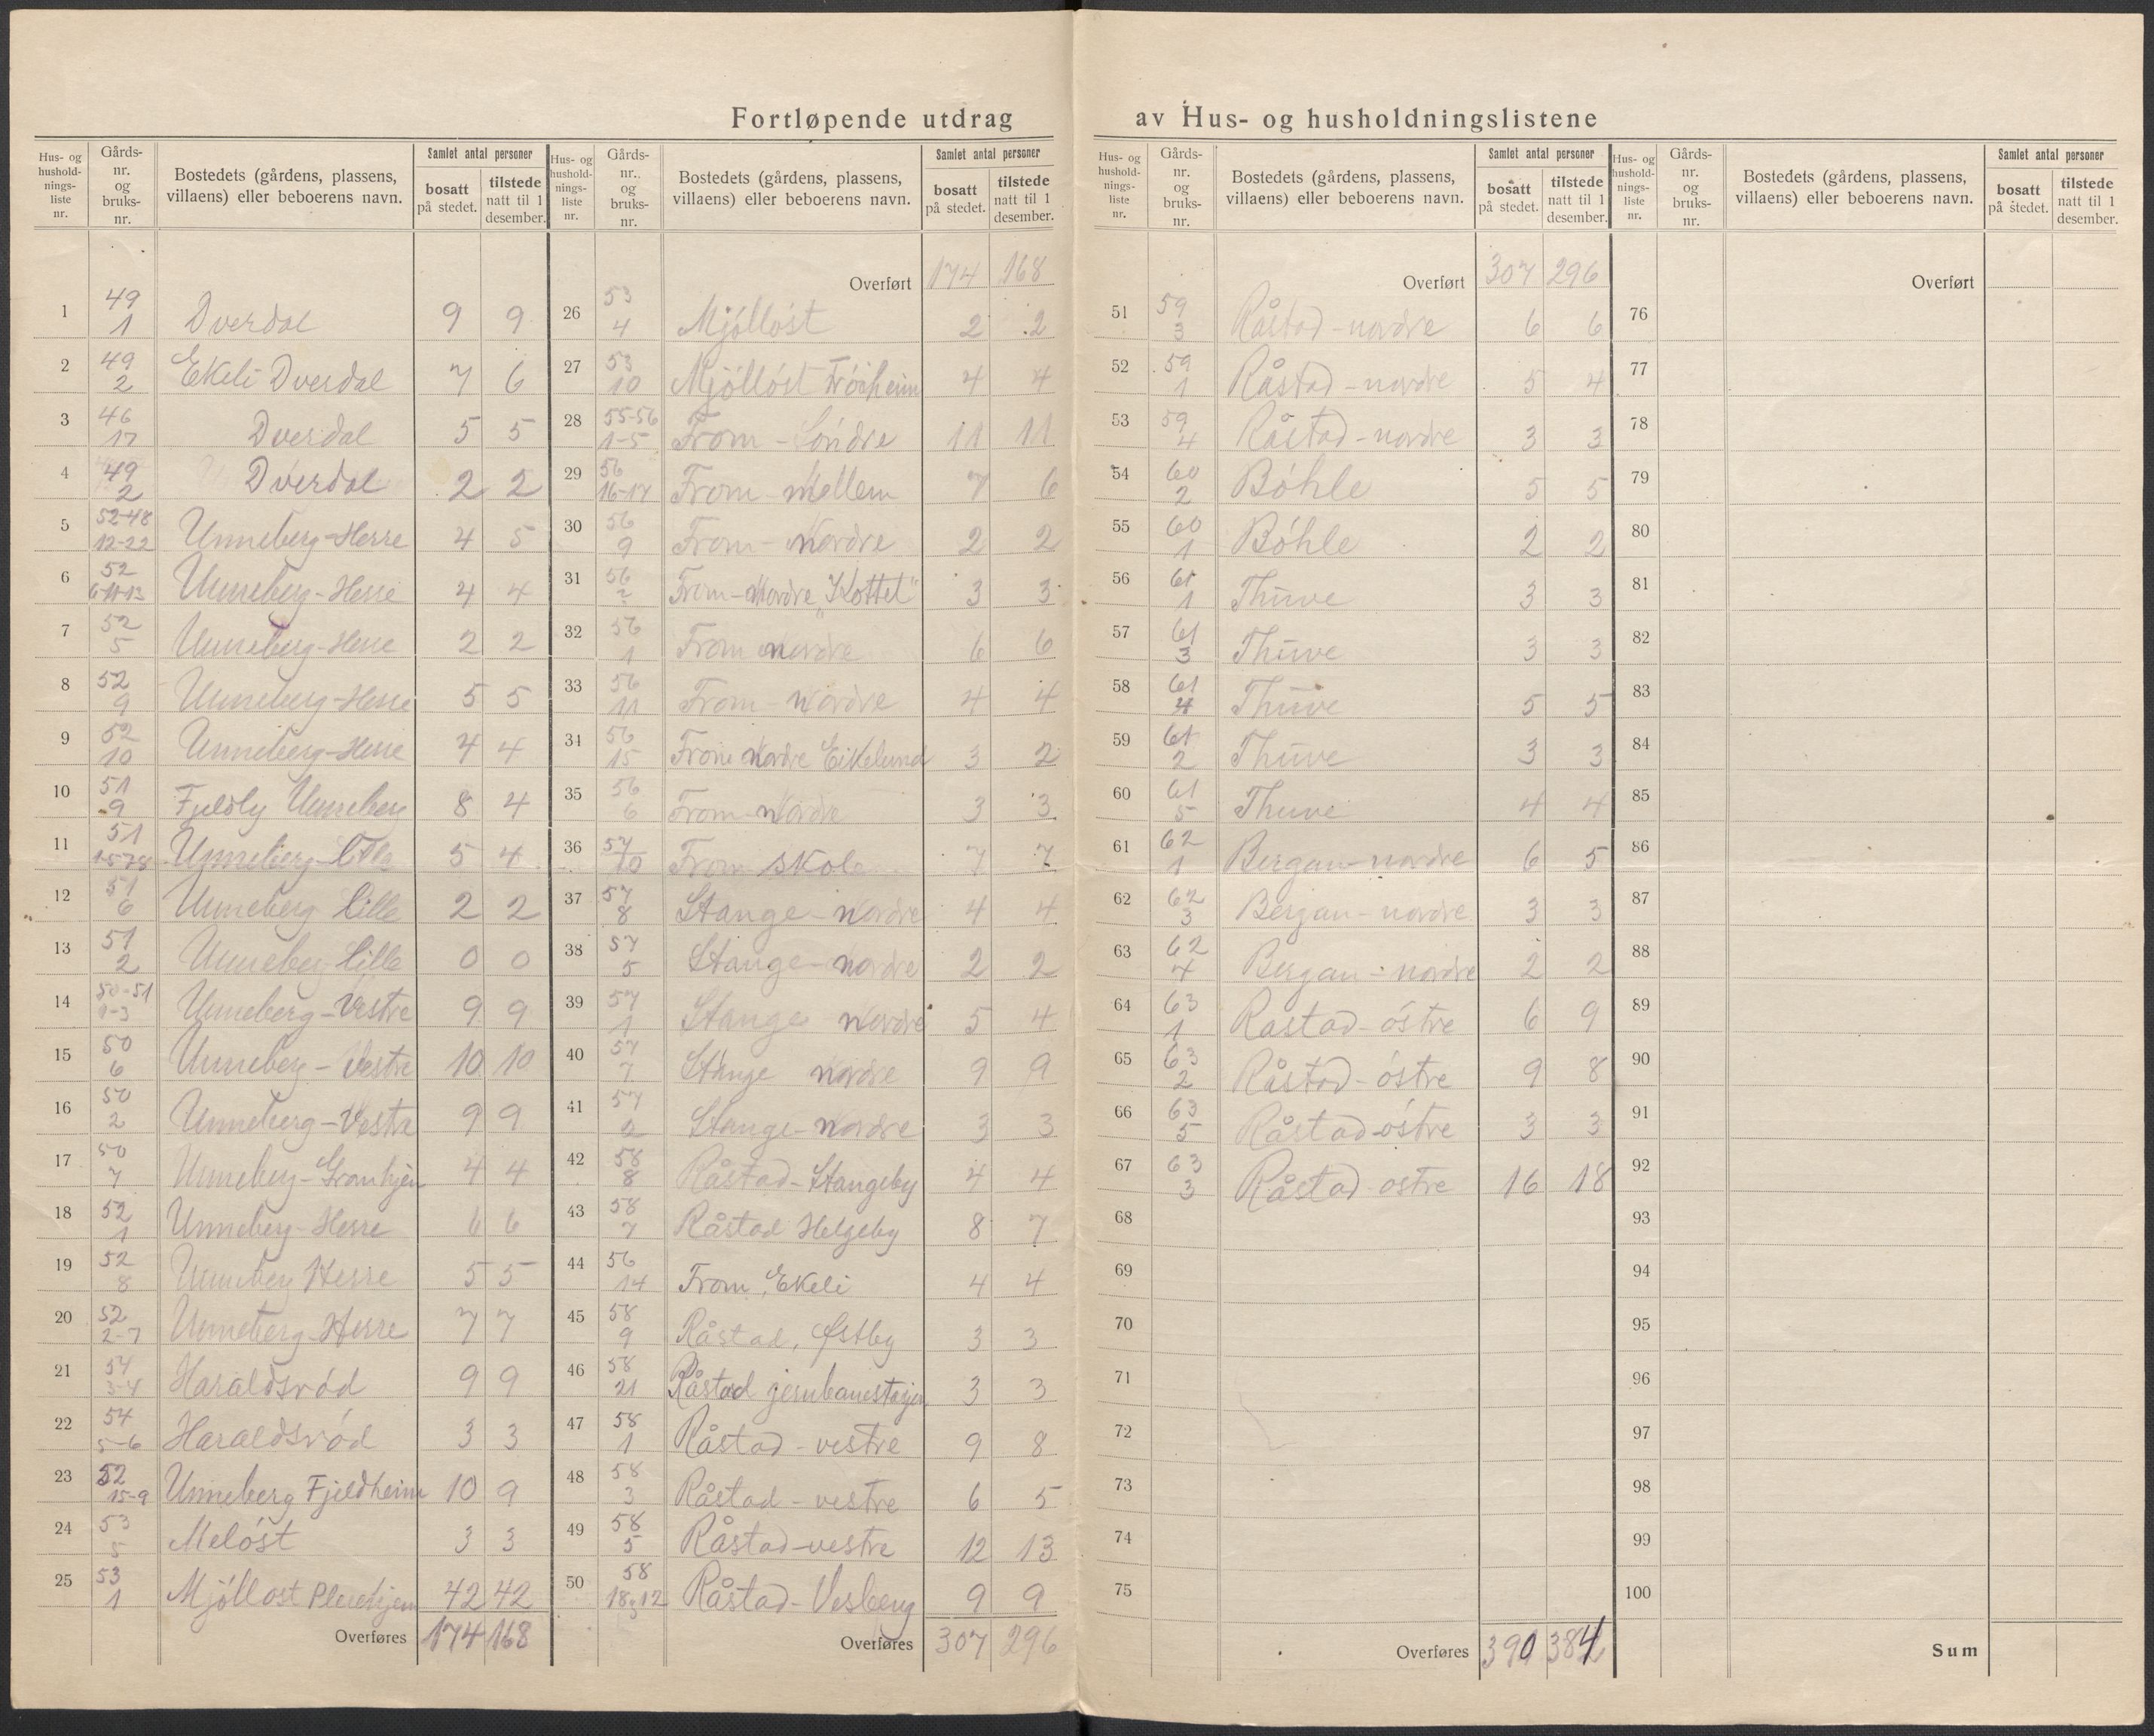 Fortløpende utdrag av Hus- og husholdningslistene
Hus- og hushold-nings-liste nr. | Gårds-nr. og bruks-nr. | Bostedets (gårdens, plassens, villaens) eller beboerens navn. | Samlet antal personer | bosatt på stedet. | tilstede natt til 1 desember.
1 49 1 Dverdal 9 9
2 49 2 Ekeli Dverdal 7 6
3 46 17 Dverdal 5 5
4 49 2 Dverdal 2 2
5 52-48 12-22 Unneberg-Herre 4 5
6 52 Unneberg-Herre 4 4
7 52 5 Unneberg-Herre 2 2
8 52 9 Unneberg-Herre 5 5
9 52 10 Unneberg-Herre 4 4
10 51 9 Fjeldly Unneberg 8 4
11 51 Unneberg-Lille 5 4
12 51 6 Unneberg Lille 2 2
13 51 2 Unneberg Lille 0 0
14 50-51 1-3 Unneberg-Vestre 9 9
15 50 6 Unneberg-Vestre 10 10
16 50 2 Unneberg-Vestre 9 9
17 50 7 Unneberg-Granhjem 4 4
18 52 1 Unneberg-Herre 6 6
19 52 8 Unneberg Herre 5 5
20 52 2-7 Unneberg-Herre 7 7
21 54 3-4 Haraldsrød 9 9
22 54 5-6 Haraldsrød 3 3
23 52 15-9 Unneberg Fjeldheim 10 9
24 53 5 Meløst 3 3
25 53 1 Mjølløst Pleiehjem 42 42
Overføres 174 168
Hus- og hushold-nings-liste nr. | Gårds-nr. og bruks-nr. | Bostedets (gårdens, plassens, villaens) eller beboerens navn. | Samlet antal personer | bosatt på stedet. | tilstede natt til 1 desember.
Overført 174 168
26 53 4 Mjølløst 2 2
27 53 10 Mjølløst Frøiheim 4 4
28 55-56 1-5 From-Søndre 11 11
29 56 16-17 From-Mellem 7 6
30 56 9 From-Nordre 2 2
31 56 2 From-Nordre "Kottet" 3 3
32 56 1 From Nordre 6 6
33 56 11 From-Nordre 4 4
34 56 15 From Nordre Eikelund 3 2
35 56 6 From-Nordre 3 3
36 57 10 From skole 7 7
37 57 8 Stange-Nordre 4 4
38 57 5 Stange-Nordre 2 2
39 57 1 Stange Nordre 5 4
40 57 7 Stange Nordre 9 9
41 57 2 Stange-Nordre 3 3
42 58 8 Råstad-Stangeby 4 4
43 58 7 Råstad Helgeby 8 7
44 56 14 From, Ekeli 4 4
45 58 9 Råstad, Østby 3 3
46 58 21 Råstad jernbanestasjon 3 3
47 58 1 Råstad-vestre 9 8
48 58 3 Råstad-vestre 6 5
49 58 5 Råstad-vestre 12 13
50 58 18,12 Råstad-Vesberg 9 9
Overføres 307 296
Hus- og hushold-nings-liste nr. | Gårds-nr. og bruks-nr. | Bostedets (gårdens, plassens, villaens) eller beboerens navn. | Samlet antal personer | bosatt på stedet. | tilstede natt til 1 desember.
Overført 307 296
51 59 3 Råstad-nordre 6 6
52 59 1 Råstad-nordre 5 4
53 59 4 Råstad-nordre 3 3
54 60 2 Bøhle 5 5
55 60 1 Bøhle 2 2
56 61 1 Thuve 3 3
57 61 3 Thuve 3 3
58 61 4 Thuve 5 5
59 61 2 Thuve 3 3
60 61 5 Thuve 4 4
61 62 1 Bergan-nordre 6 5
62 62 3 Bergan-nordre 3 3
63 62 4 Bergan-nordre 2 2
64 63 1 Råstad-østre 6 9
65 63 2 Råstad-østre 9 8
66 63 5 Råstad-østre 3 3
67 63 3 Råstad østre 16 18
68
69
70
71
72
73
74
75
Overføres 390 384
Hus- og hushold-nings-liste nr. | Gårds-nr. og bruks-nr. | Bostedets (gårdens, plassens, villaens) eller beboerens navn. | Samlet antal personer | bosatt på stedet. | tilstede natt til 1 desember.
Overført
76
77
78
79
80
81
82
83
84
85
86
87
88
89
90
91
92
93
94
95
96
97
98
99
100
Sum